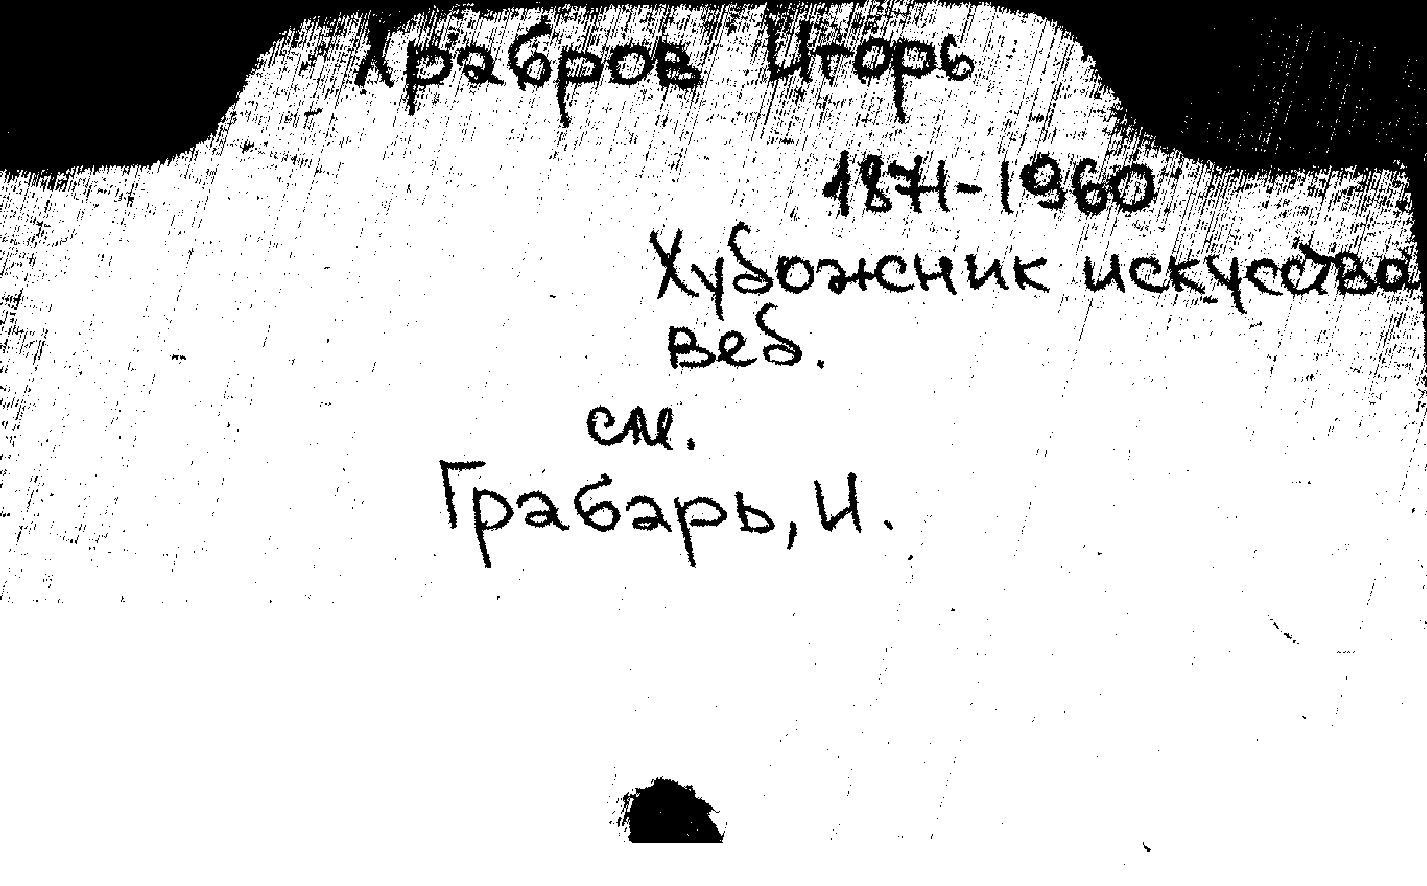 Храбров Игорь
1871-1960
Художник искусство
вед.
см.
Грабарь, И.